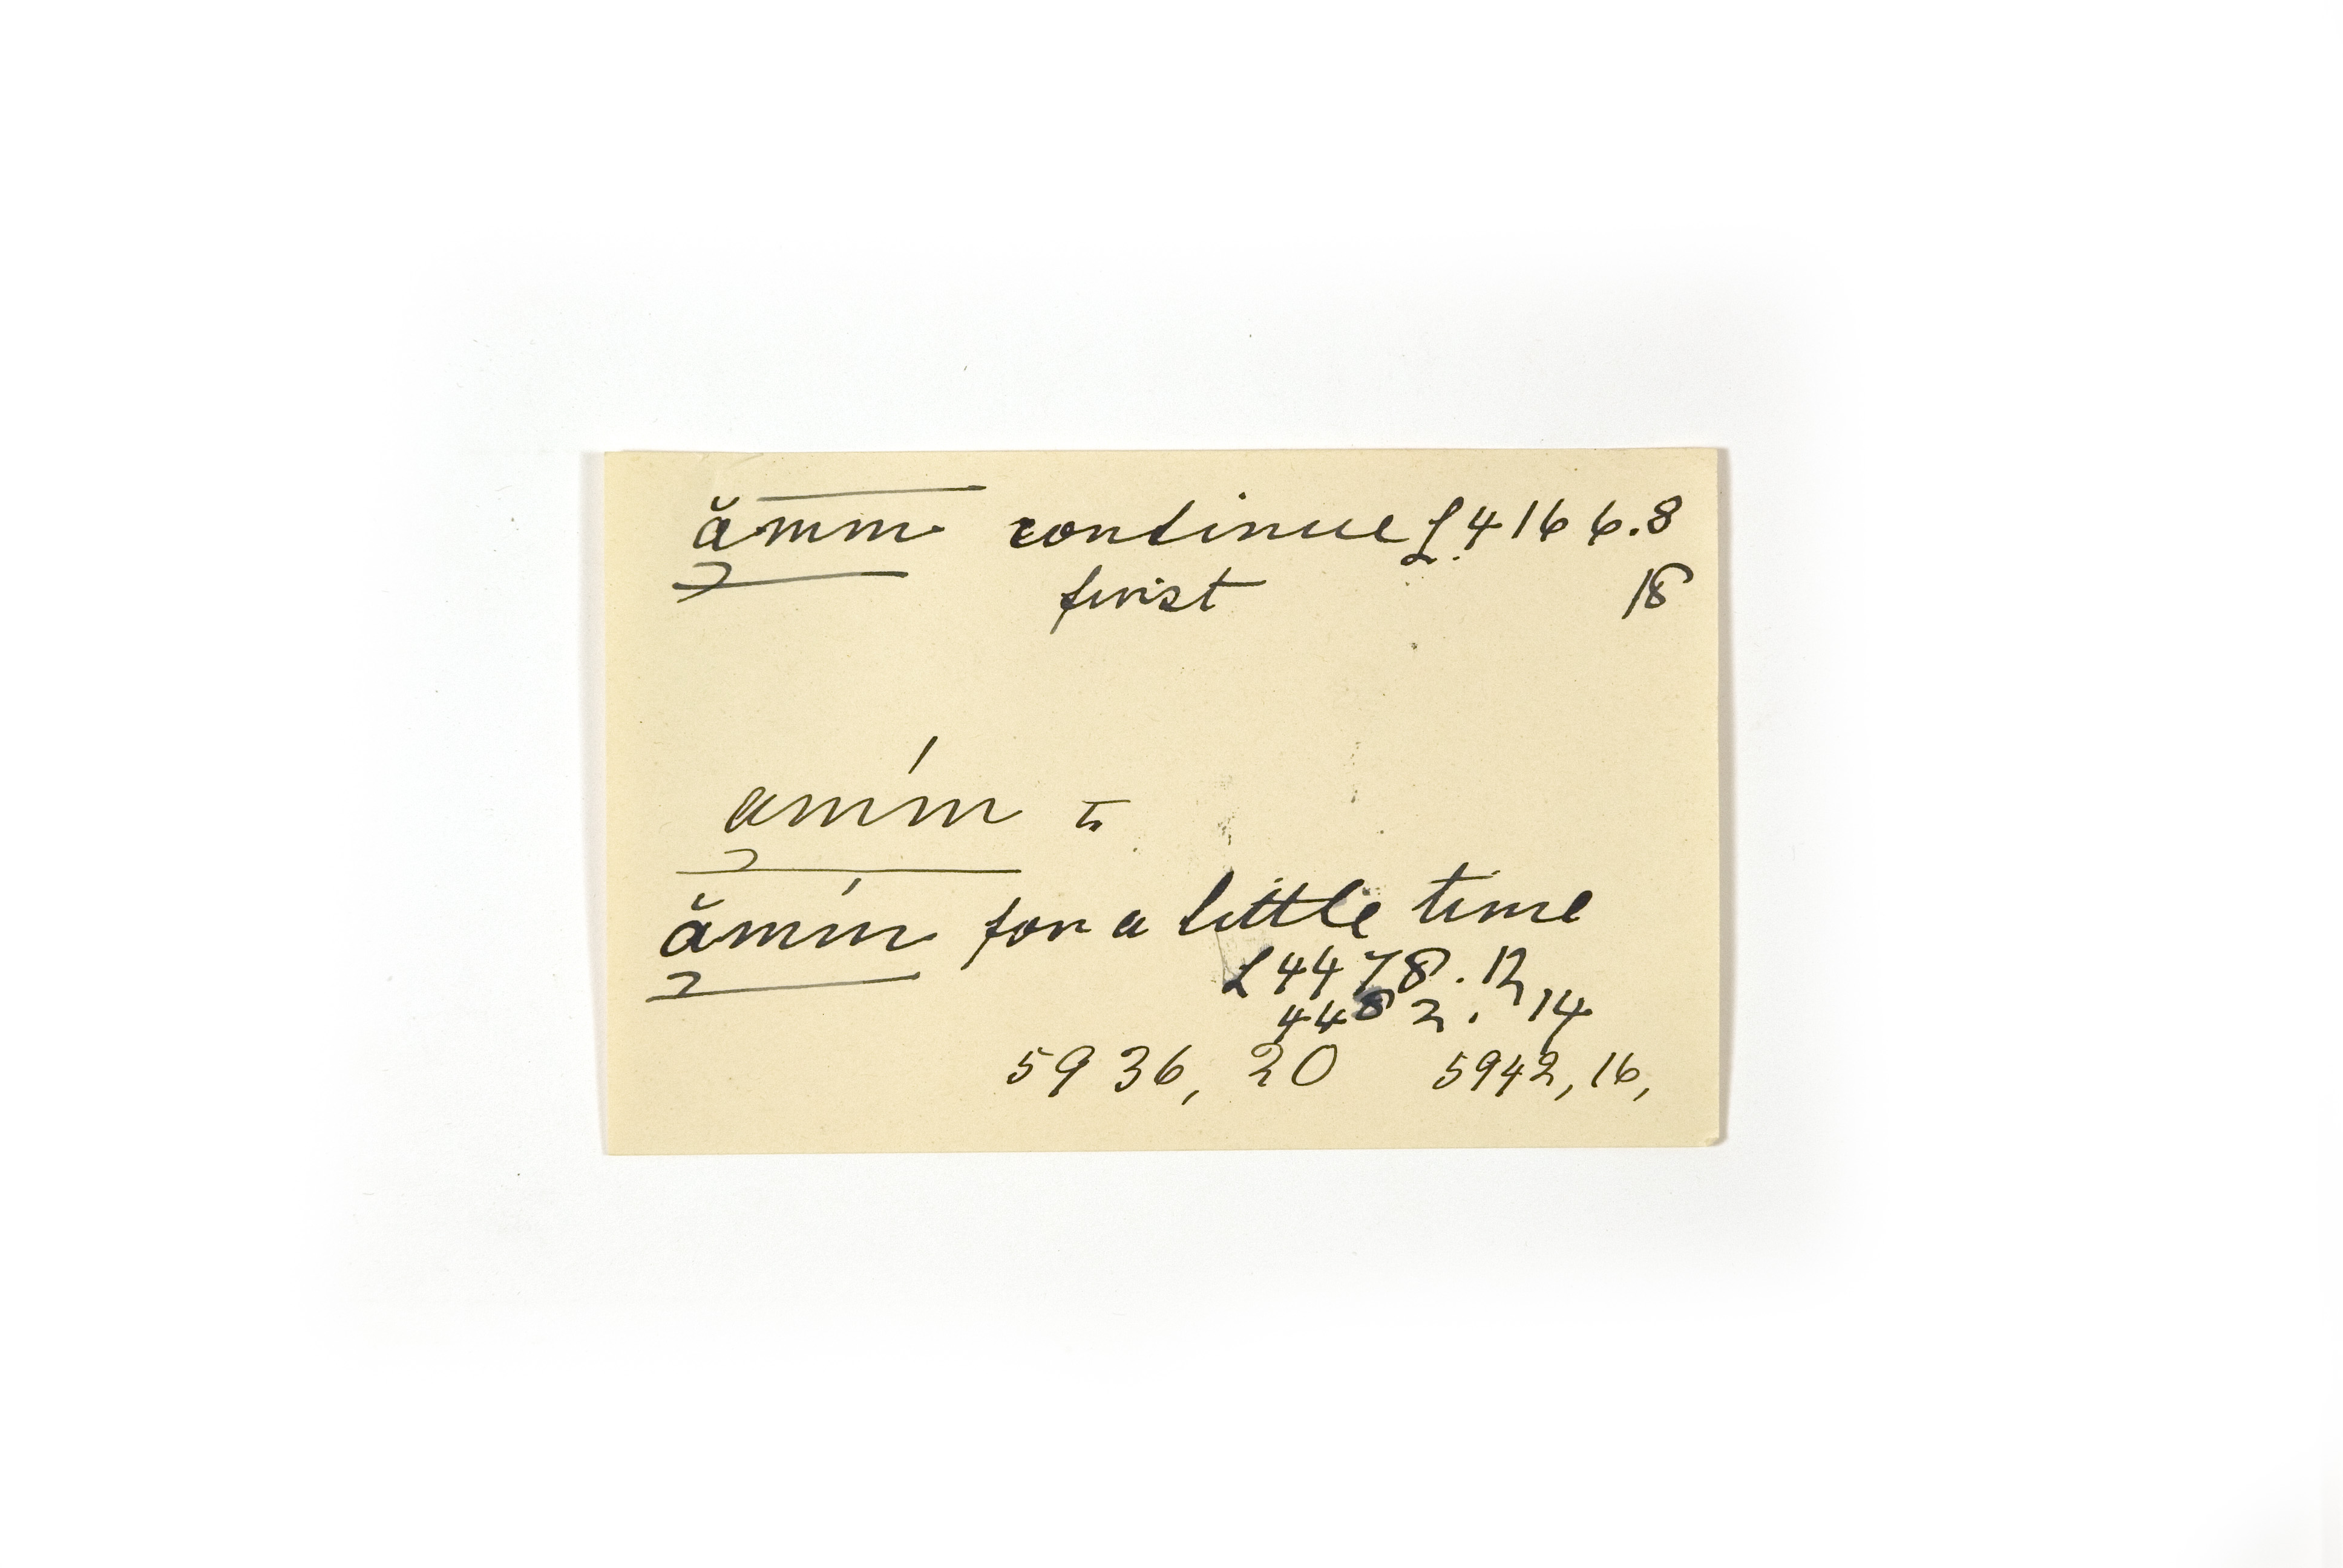 ămm continue L. 4166.8
first 18
amḿ =
ămḿ for a little time
L 4478.12
4482. 14
5936, 20 5942, 16,